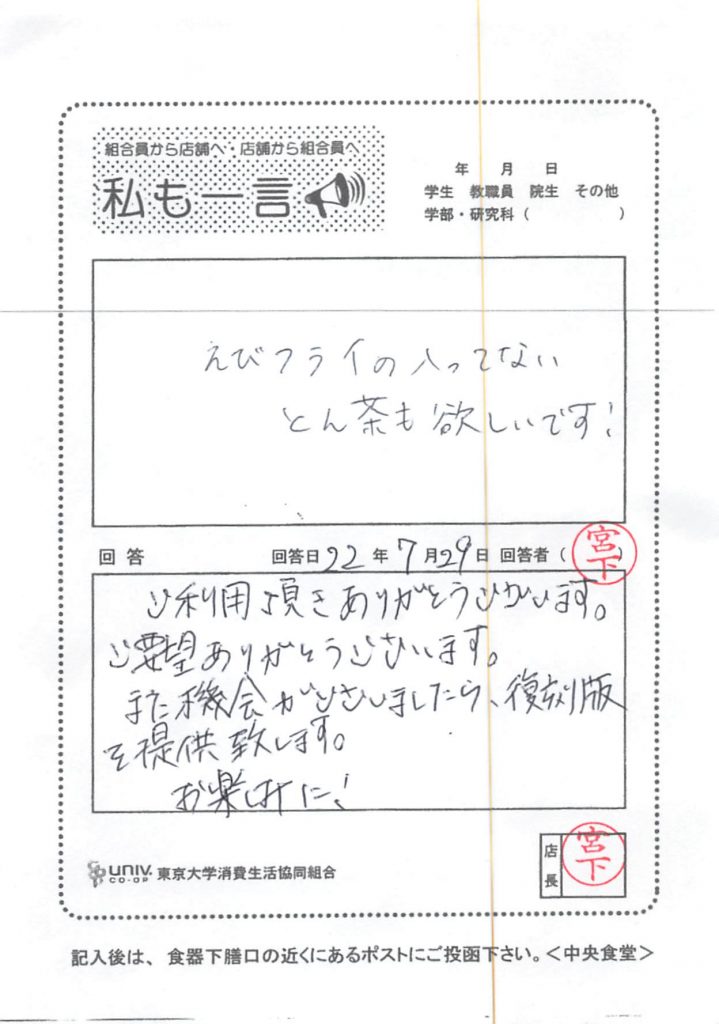 組合員から店舗へ・店舗から組合員へ
私も一言
年 月 日
学生 教職員 院生 その他
学部・研究科（ ）
えびフライの入ってない
とん茶も欲しいです!
回答 回答日 22 年 7 月 29 日 回答者（宮下）
ご利用頂きありがとうございます。
ご要望ありがとうございます。
また機会がございましたら、復刻版
を提供致します。
お楽しみに!
店長 宮下
UNIV. CO-OP 東京大学消費生活協同組合
記入後は、食器下膳口の近くにあるポストにご投函下さい。＜中央食堂＞